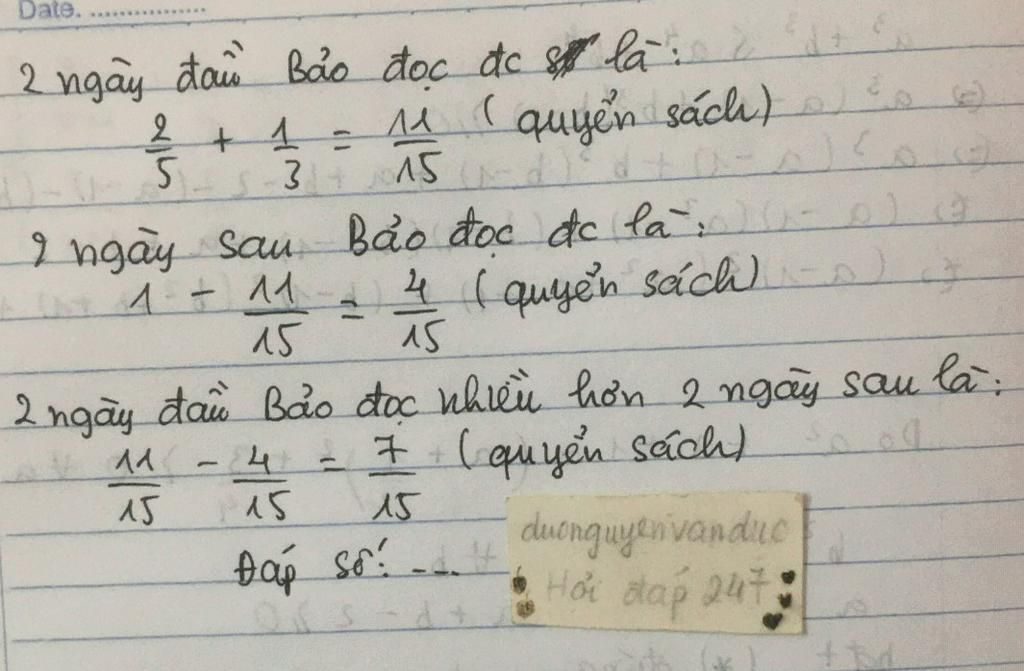 Date. ...............
2 ngày đầu Bảo đọc đc là:
2/5 + 1/3 = 11/15 (quyển sách)
2 ngày sau Bảo đọc đc là:
1 - 11/15 = 4/15 (quyển sách)
2 ngày đầu Bảo đọc nhiều hơn 2 ngày sau là:
11/15 - 4/15 = 7/15 (quyển sách)
Đáp số: ....
ducnguyenvanduc
Hỏi đáp 247